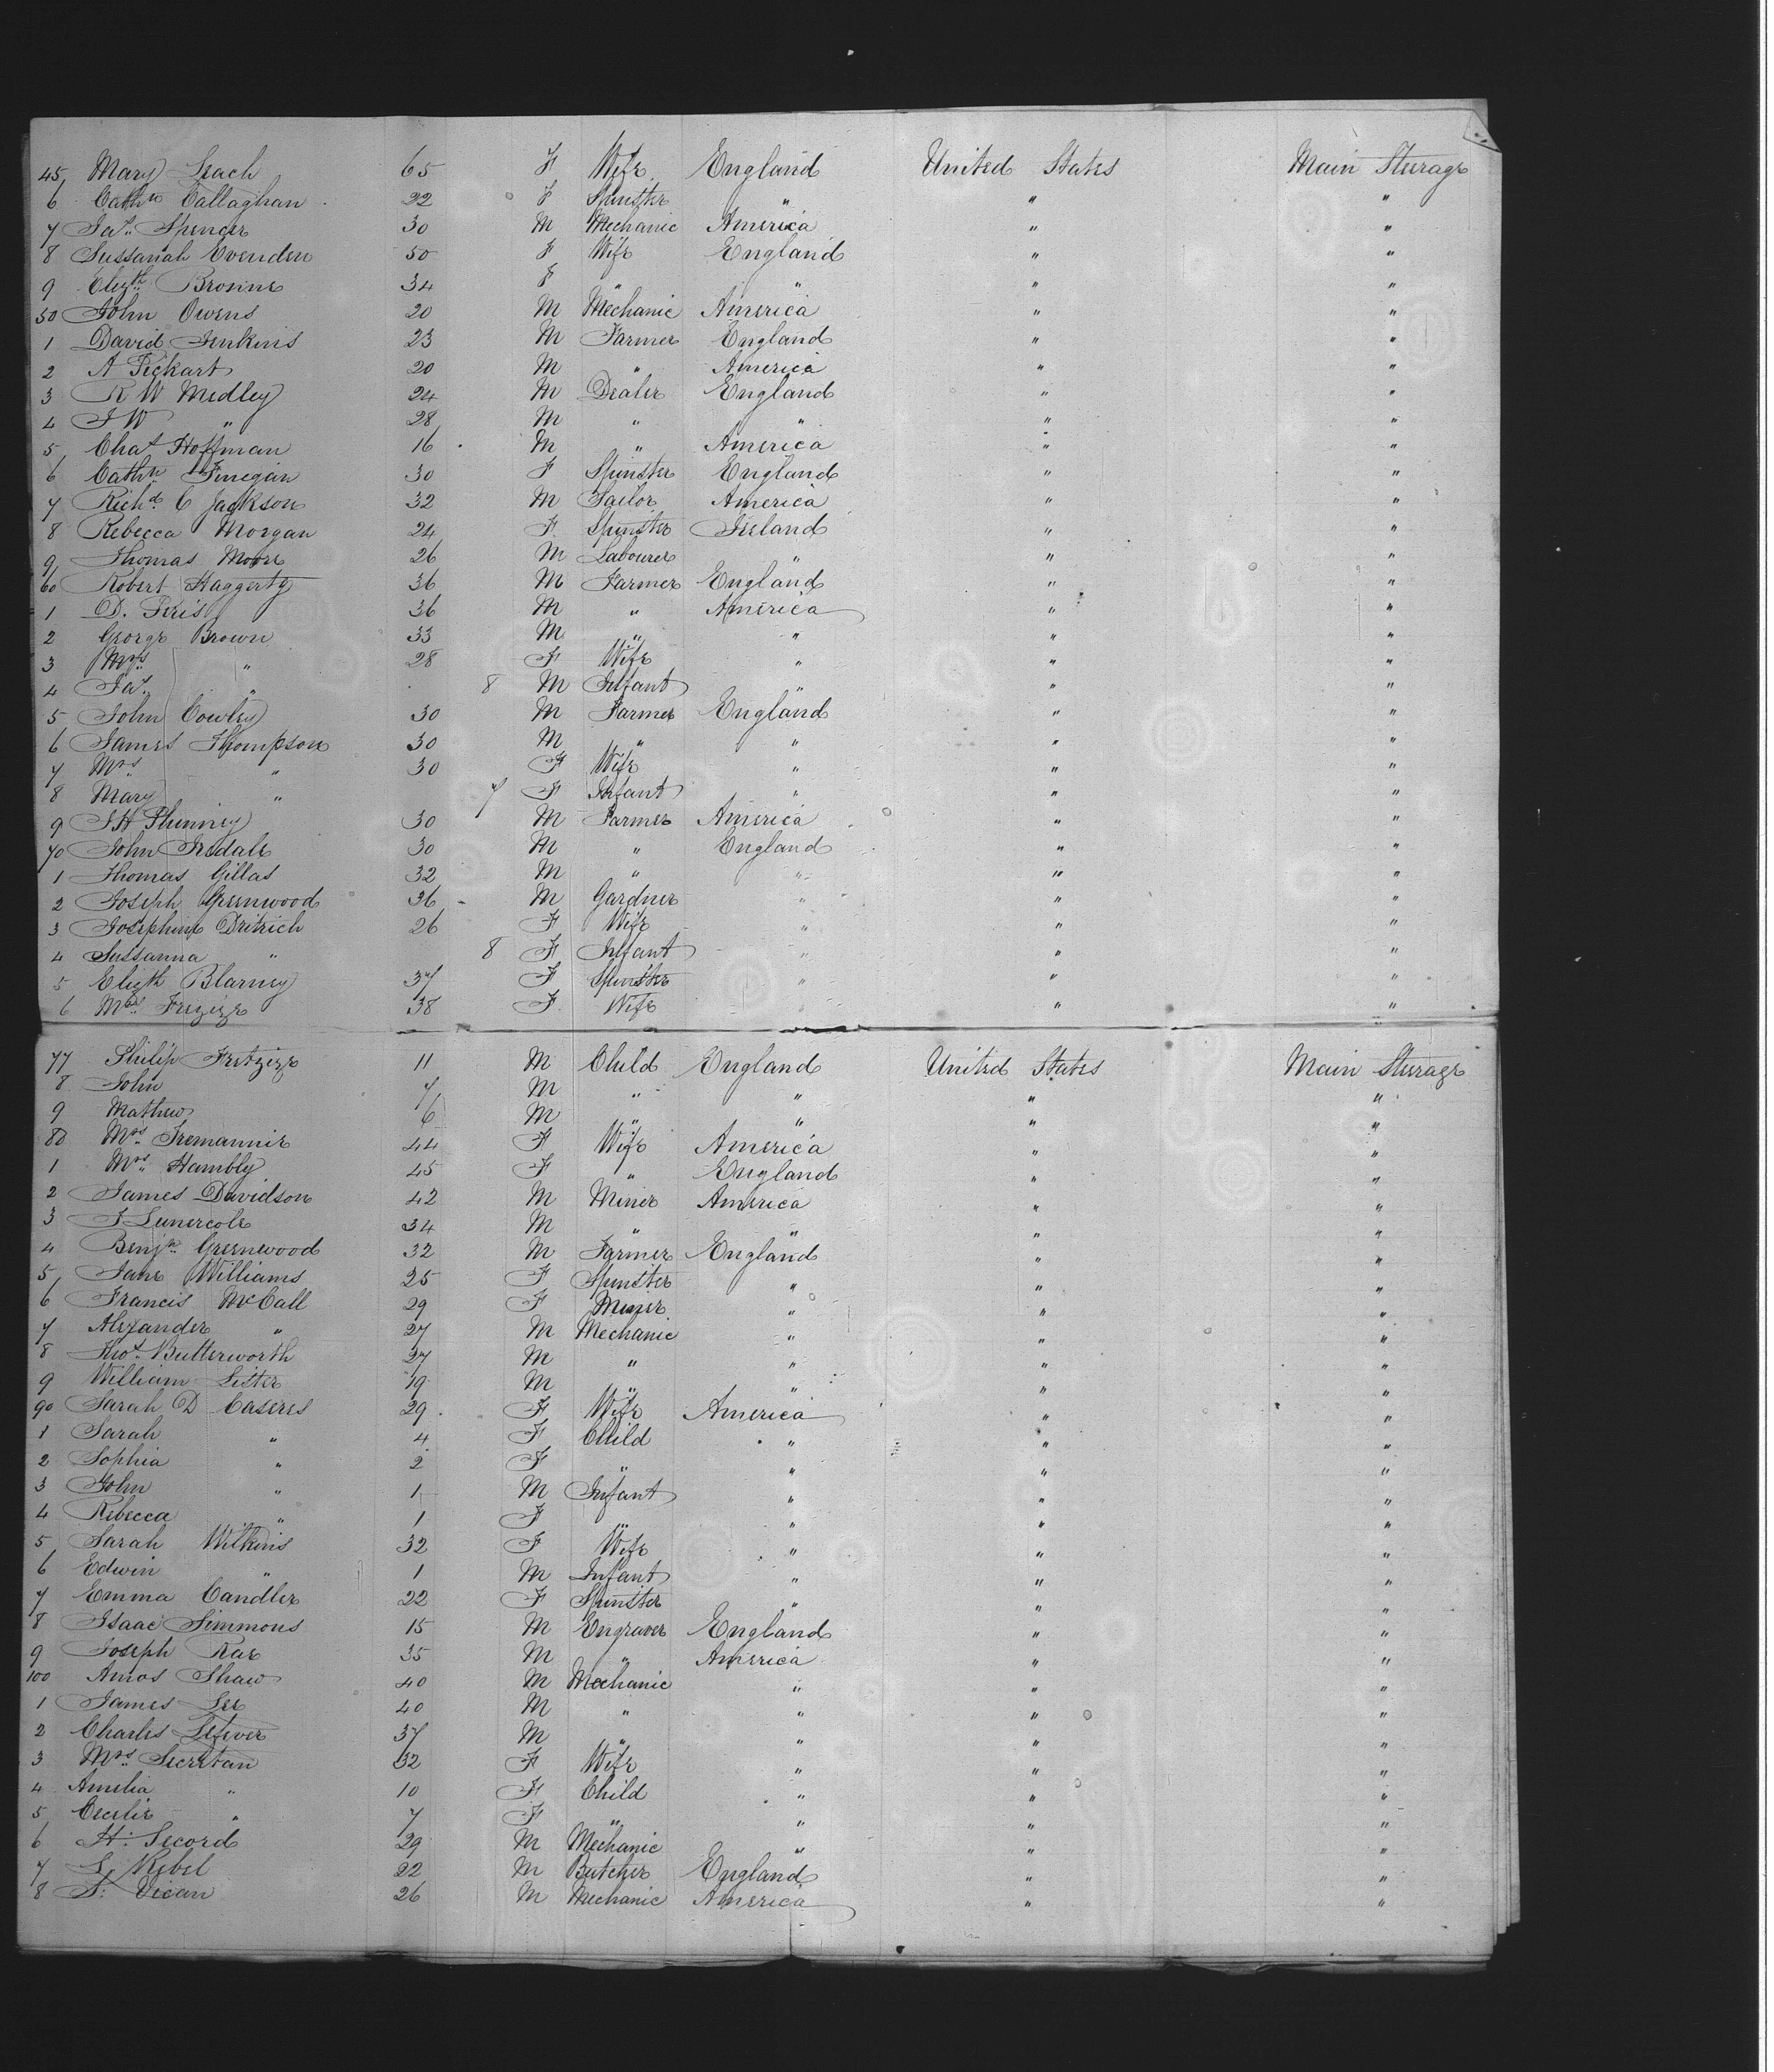 45 Mary Leach 65 F Wife England United States Main Steerage
6 Cathn Callaghan 22 F Spinster " " "
7 Jas. Spencer 30 M Mechanic America " "
8 Sussanah Evenden 50 F Wife England " "
9 Elizth. Browne 34 F " " " "
50 John Owens 20 M Mechanic America " "
1 David Jenkins 23 M Farmer England " "
2 A Pickart 20 M " America " "
3 R W Medley 24 M Dealer England " "
4 J W " 28 M " " " "
5 Chas Hoffman 16 M " America " "
6 Cathn Finegan 30 F Spinster England " "
7 Richd C Jackson 32 M Sailor America " "
8 Rebecca Morgan 24 F Spinster Ireland " "
9 Thomas Moore 26 M Labourer " " "
60 Robert Haggerty 36 M Farmer England " "
1 D. Feris 36 M " America " "
2 George Brown 33 M " " " "
3 Mrs " 28 F Wife " " "
4 Jas. " 8 M Infant " " "
5 John Cowley 30 M Farmer England " "
6 James Thompson 30 M " " " "
7 Mrs " 30 F Wife " " "
8 Mary " 7 F Infant " " "
9 J H Phinney 30 M Farmer America " "
70 John Iredale 30 M " England " "
1 Thomas Gillas 32 M " " " "
2 Joseph Greenwood 36 M Gardner " " "
3 Josephine Dritrich 26 F Wife " " "
4 Sussanna " 8 F Infant " " "
5 Elizth Blarney 37 F Spinster " " "
6 Mrs. Frezize 38 F Wife " "
77 Philip Fretzize 11 M Child England United States Main Steerage
8 John 7 M " " " "
9 Mathew 6 M " " " "
80 Mrs. Tremannie 44 F Wife America " "
1 Mrs. Hambly 45 F " England " "
2 James Davidson 42 M Miner America " "
3 J Lunercole 34 M " " " "
4 Benjn. Greenwood 32 M Farmer England " "
5 Jane Williams 25 F Spinster " " "
6 Francis McCall 29 F Miner " " "
7 Alexander " 27 M Mechanic " " "
8 Thos. Butterworth 27 M " " " "
9 William Lister 19 M " " " "
90 Sarah D Caseres 29 F Wife America " "
1 Sarah " 4 F Child " " "
2 Sophia " 2 F " " " "
3 John " 1 M Infant " " "
4 Rebecca " 1 F " " " "
5 Sarah Wilkins 32 F Wife " " "
6 Edwin " 1 M Infant " " "
7 Emma Candler 22 F Spinster " " "
8 Isaac Simmons 15 M Engraver England " "
9 Joseph Rae 35 M " America " "
100 Amos Shaw 40 M Mechanic " " "
1 James Lee 40 M " " " "
2 Charles Lefever 37 M " " " "
3 Mrs. Secretan 32 F Wife " " "
4 Amelia " 10 F Child " " "
5 Cecelie " 7 F " " " "
6 H. Secord 29 M Mechanic " " "
7 L. Rebel 22 M Butcher England " "
8 S. Vican 26 M Mechanic America " "